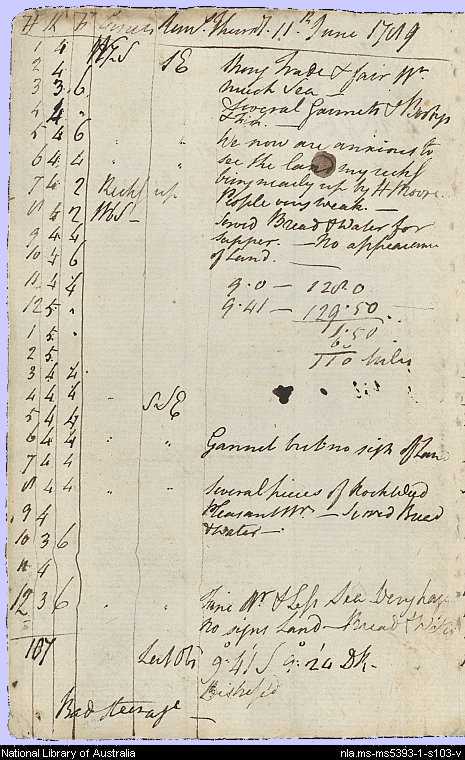 H K F Courses Remks. Thursd. 11th June 1789
1 4 WSW SE Strong Trade & fair Wr.
2 4 much Sea —
3 3 6 Several Gannets & Boobys
4 4 " & this. —
5 4 6 We now are anxious to
6 4 4 " " see the land my reckg
7 4 2 Reckg up being nearly up by H. Moore.
8 4 2 WbS — People very weak. —
9 4 4 Served Bread & Water for
10 4 6 supper. — No appearance
of Land. —
11 4 4 9.0 — 128.0
12 5 " 9.41 — 129.50
1 5 " 1.50
2 5 60
3 4 4 110 Miles
4 4 4 " SSE
5 4 4
6 4 4 " " Gannet but no sign of Land
7 4 4
8 4 4 " " Several pieces of Rock Weed
9 4 Pleasant Wr. — Served Bread
10 3 6 & Water —
11 4
12 3 6 " " Fine Wr. & Less Sea
No signs Land — Bread & Water
107 Lat Obs 9°.41' S 9°.24 DR.
Bad steerage —
National Library of Australia nla.ms-ms5393-1-s103-v